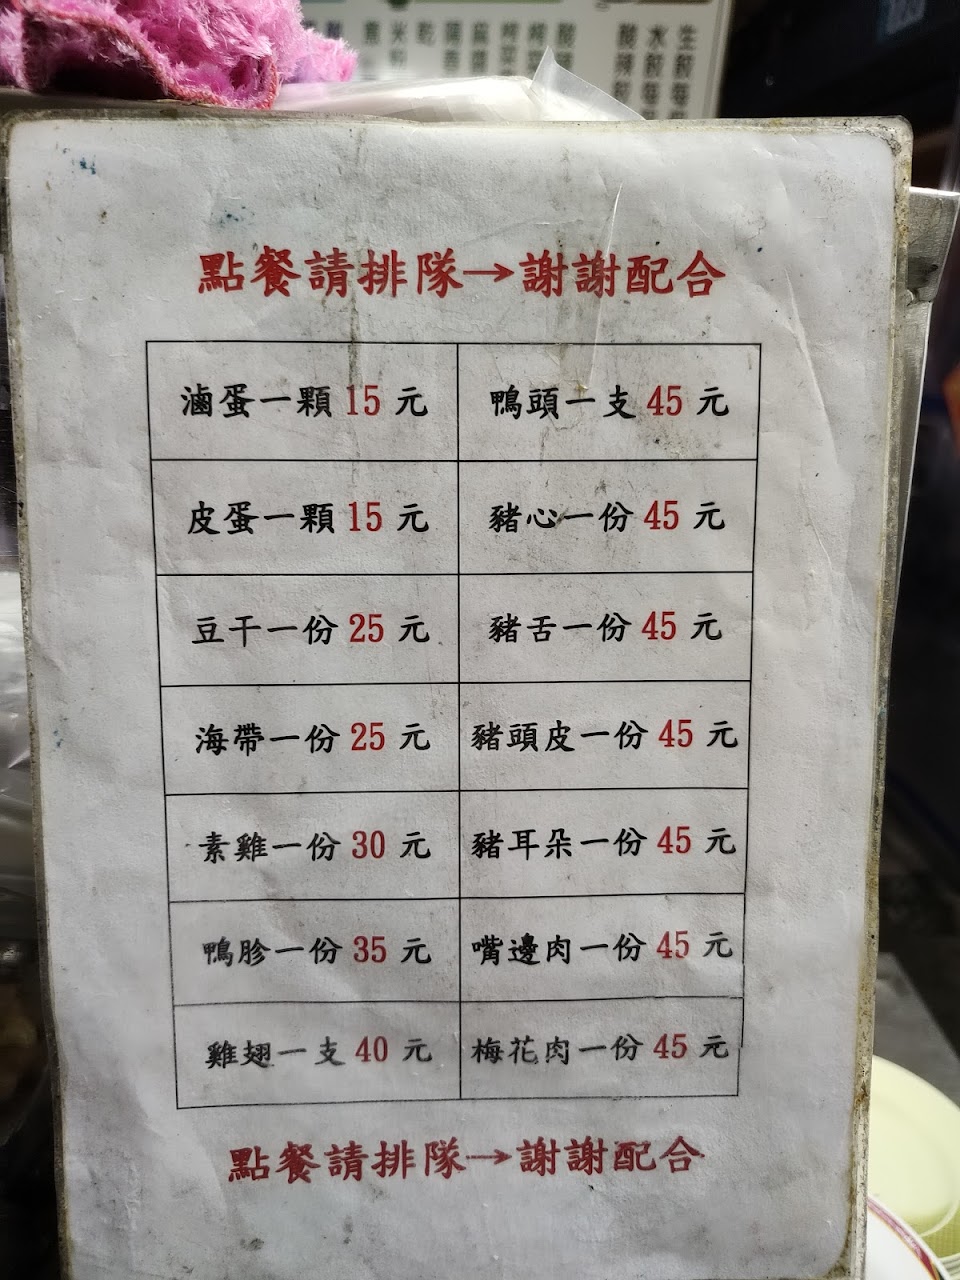 點餐請排隊→謝謝配合
滷蛋一顆 15 元
鴨頭一支 45 元
皮蛋一顆 15 元
豬心一份 45 元
豆干一份 25 元
豬舌一份 45 元
海帶一份 25 元
豬頭皮一份 45 元
素雞一份 30 元
豬耳朵一份 45 元
鴨胗一份 35 元
嘴邊肉一份 45 元
雞翅一支 40 元
梅花肉一份 45 元
點餐請排隊→謝謝配合